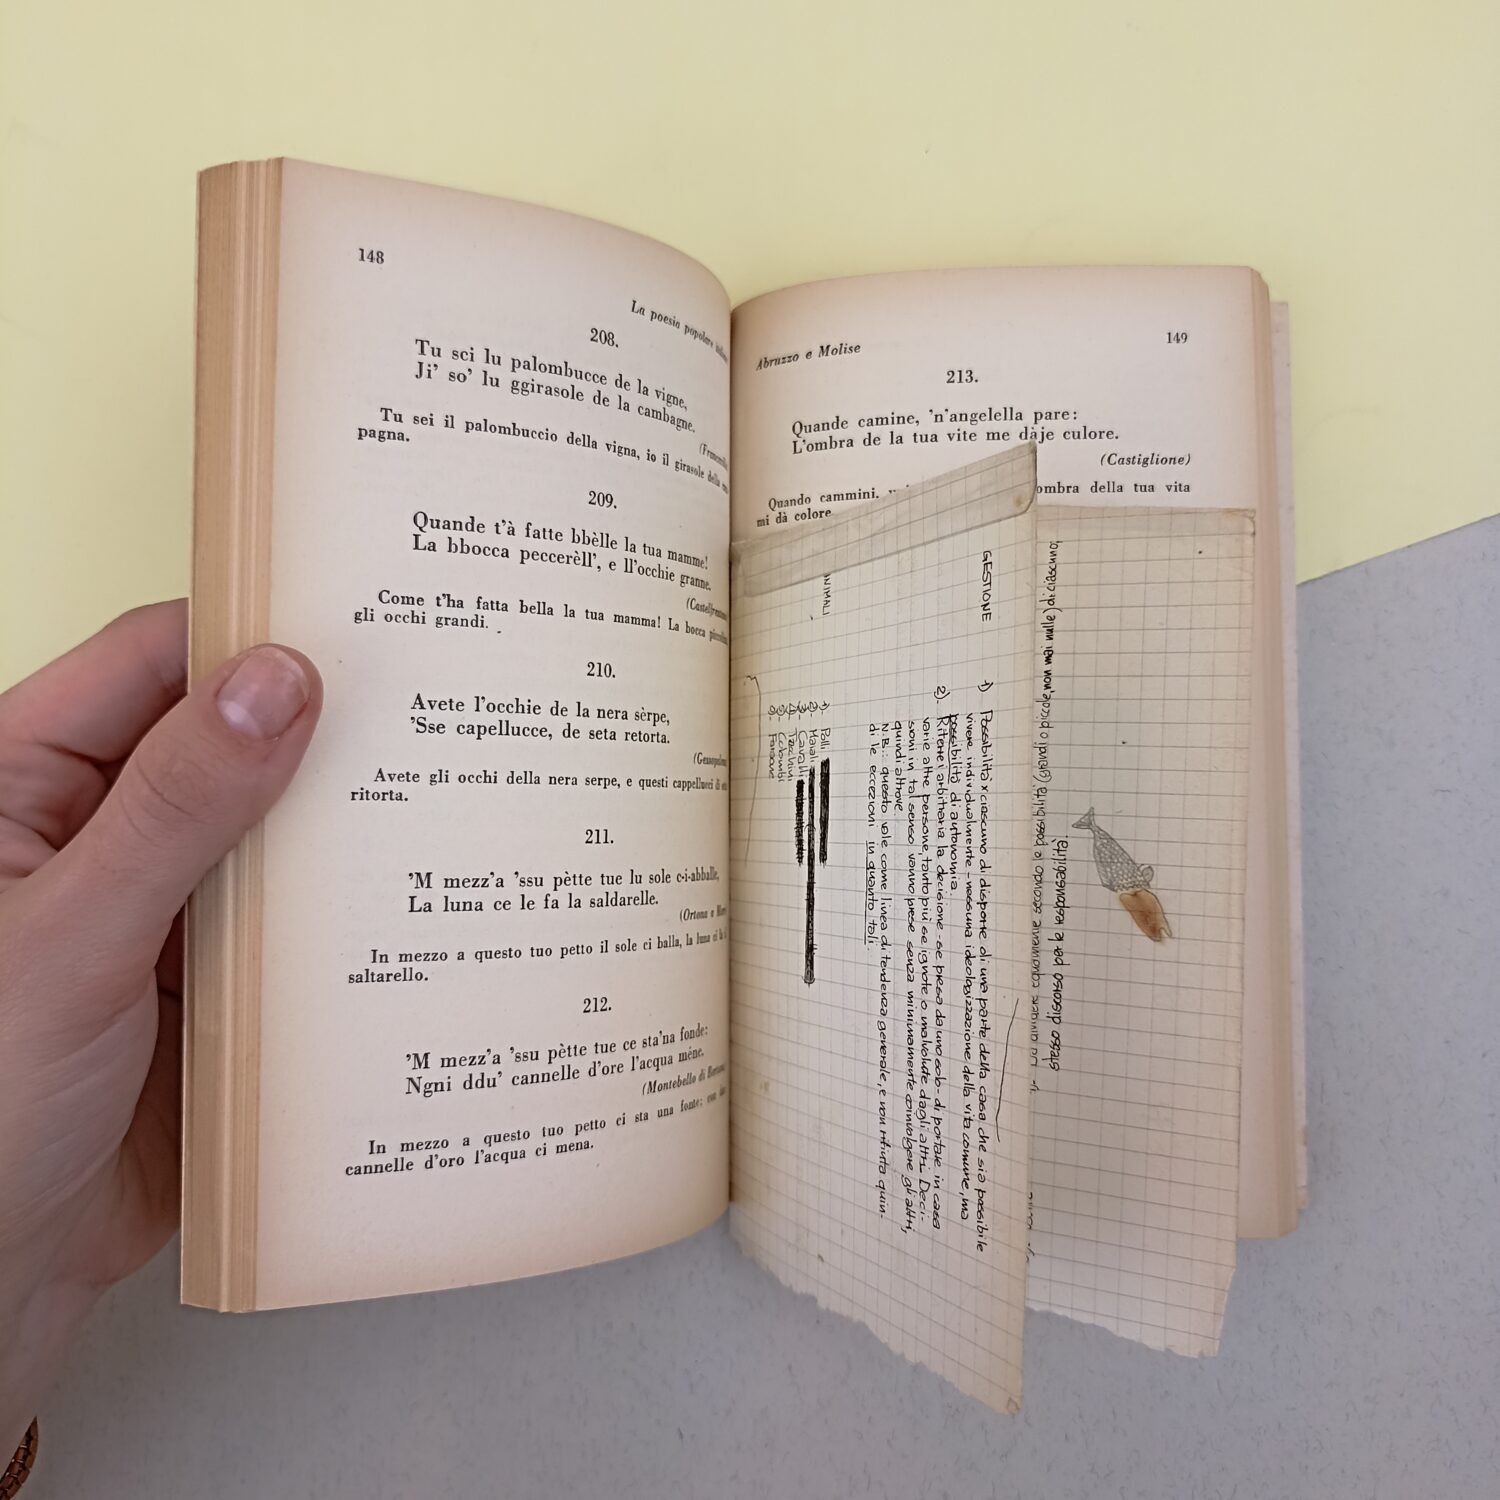 148
La poesia popolare italiana
208.
Tu sci lu palombucce de la vigne,
Ji' so' lu ggirasole de la cambagne.
Tu sei il palombuccio della vigna, io il girasole della
pagna.
209.
Quande t'à fatte bbèlle la tua mamme!
La bbocca peccerèll', e ll'occhie granne.
Come t'ha fatta bella la tua mamma! La bocca piccolina
gli occhi grandi.
210.
Avete l'occhie de la nera sèrpe,
'Sse capellucce, de seta retorta.
Avete gli occhi della nera serpe, e questi cappellucci di
ritorta.
211.
'M mezz'a 'ssu pètte tue lu sole c-i-abballe,
La luna ce le fa la saldarelle.
(Ortona a
In mezzo a questo tuo petto il sole ci balla, la luna ci
saltarello.
212.
'M mezz'a 'ssu pètte tue ce sta'na fonde:
Ngni ddu' cannelle d'ore l'acqua méne.
(Montebello di
In mezzo a questo tuo petto ci sta una fonte: con
cannelle d'oro l'acqua ci mena.
149
Abruzzo e Molise
213.
Quande camine, 'n'angelella pare:
L'ombra de la tua vite me dàje culore.
(Castiglione)
Quando cammini, ombra della tua vita
mi dà colore
GESTIONE
1) Possibilità x ciascuno di disporre di una parte della casa che sia possibile
vivere individualmente - nessuna ideologizzazione della vita comune, ma
possibilità di autonomia.
2) Riterrei arbitraria la decisione - se presa da uno solo - di portare in casa
varie altre persone, tanto più se ignote o malvolute dagli altri. Deci-
sioni in tal senso vanno prese senza minimamente coinvolgere gli altri,
quindi altrove.
N.B.: questo vale come linea di tendenza generale, e non rifiuta quin-
di le eccezioni in quanto tali.
NIMALI
1) Polli
2) Maiali
3) Cavalli
4) Tacchini
5) Colombi
6) Faraone
da dividere equamente secondo le possibilità (grandi o piccole, non mai nulle) di ciascuno;
stesso discorso per le responsabilità.